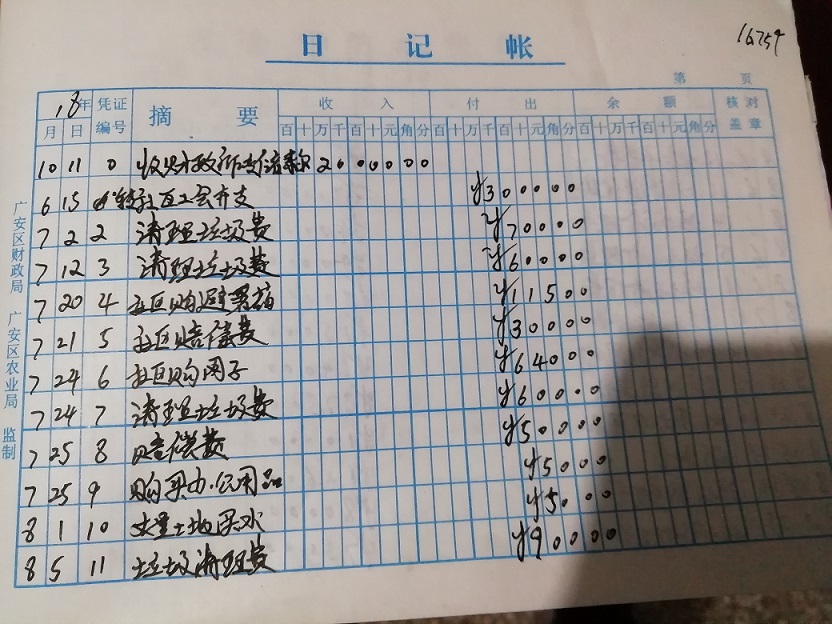 16759
日记帐
第 页
18年 凭证编号 摘要 收入 付出 余额 核对盖章
月 日 百十万千百十元角分 百十万千百十元角分 百十万千百十元角分
10 11 0 收财政所 款 20 00000
6 15 社区工会开支 ¥300000
7 2 2 清理垃圾费 ¥70000
7 12 3 清理垃圾费 ¥60000
7 20 4 社区购避暑药 ¥11500
7 21 5 社区赔偿费 ¥30000
7 24 6 社区购 子 ¥64000
7 24 7 清理垃圾费 ¥60000
7 25 8 赔偿费 ¥50000
7 25 9 购买办公用品 ¥5000
8 1 10 丈量土地买水 ¥5000
8 5 11 垃圾清理费 ¥90000
广安区财政局 广安区农业局 监制